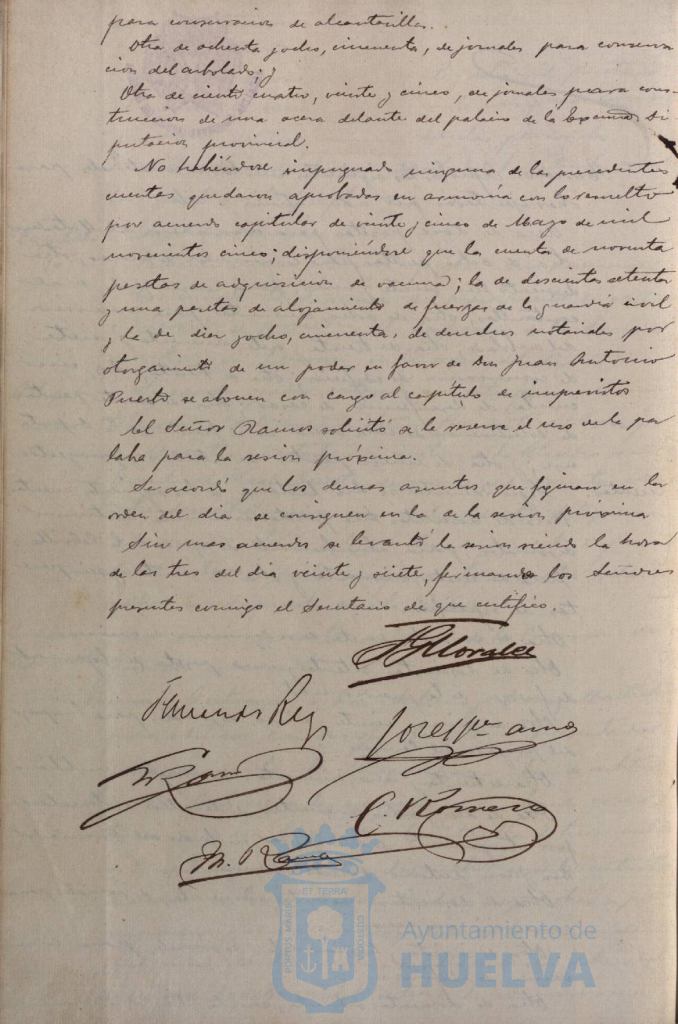 para conservacion de alcantarillas.
Otra de ochenta y ocho, cincuenta, de jornales para conserva
cion del arbolado; y
Otra de ciento cuatro, veinte y cinco, de jornales para cons-
truccion de una acera delante del palacio de la Excma Di
putacion provincial.
No habiéndose impugnado ninguna de las precedentes
cuentas quedaron aprobadas en armonía con lo resuelto
por acuerdo capitular de veinte y cinco de Mayo de mil
novecientos cinco; disponiéndose que la cuenta de noventa
pesetas de adquisicion de vacuna; la de doscientas setenta
y una pesetas de alojamiento de fuerzas de la guardia civil
y la de diez y ocho, cincuenta, de derechos notariales por
otorgamiento de un poder en favor de Don Juan Antonio
Puerto se abonen con cargo al capítulo de imprevistos
El Señor Ramos solicitó se le reserve el uso de la pa
labra para la sesión próxima.
Se acordó que los demas asuntos que figuran en la
orden del dia se consignen en la de la sesión próxima
Sin mas acuerdos se levantó la sesion siendo la hora
de las tres del dia veinte y siete, firmando los Señores
presentes conmigo el Secretario de que certifico.
Morales
Rey
C. Romero
M.
PORTUS MARIS ET TERRAE CUSTODIA
Ayuntamiento de
HUELVA